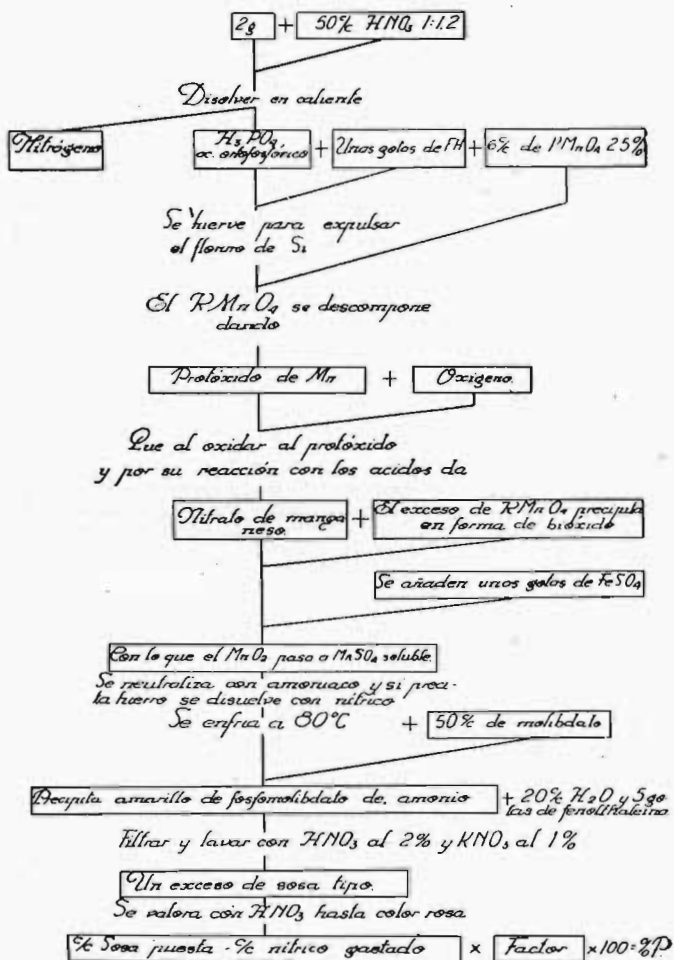 2g + 50% HNO3 1:1.2
Disolver en caliente
Nitrógeno
H3PO4
ac. ortofosfórico
+ Unas gotas de FH + 6% de PMnO4 25%
Se hierve para expulsar
el floruro de Si
El KMnO4 se descompone
dando
Protóxido de Mn + Oxigeno.
Que al oxidar al protóxido
y por su reacción con los acidos da
Nitrato de manga
neso.
+ El exceso de KMnO4 precipita
en forma de bióxido
Se añaden unas gotas de FeSO4
Con lo que el MnO2 pasa a MnSO4 soluble.
Se neutraliza con amoniaco y si preci-
ta hierro se disuelve con nítrico
Se enfria a 80°C + 50% de molibdato
Precipita amarillo de fosfomolibdato de. amonio + 20% H2O y 5 go
tas de fenolthaleina
Filtrar y lavar con HNO3 al 2% y KNO3 al 1%
Un exceso de sosa tipo.
Se valora con HNO3 hasta color rosa
% Sosa puesta - % nítrico gastado × Factor × 100 = %P